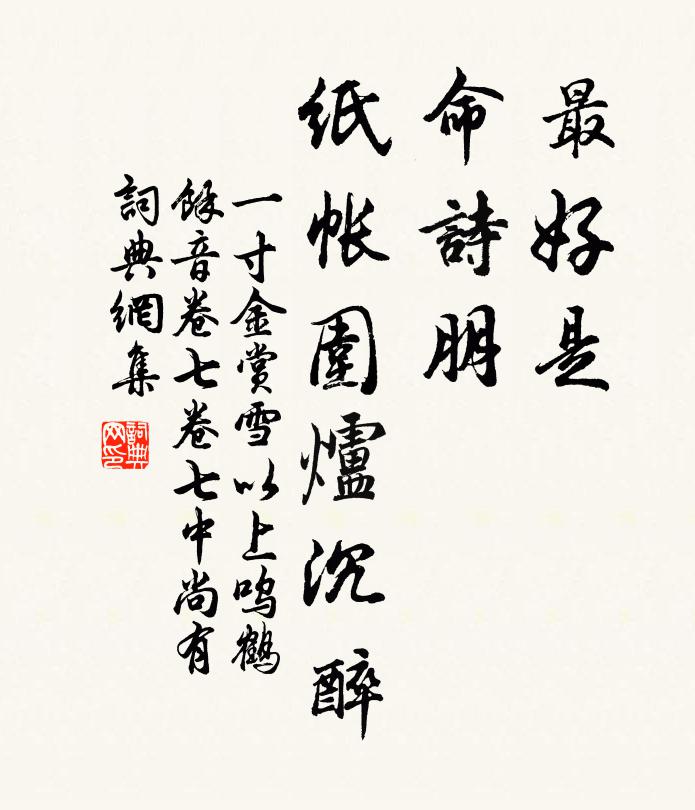 最好是
命詩朋
紙帳圍爐沉醉
一寸金賞雪以上鸣鶴
餘音卷七卷七中尚有
詞典網集
詞典
网印